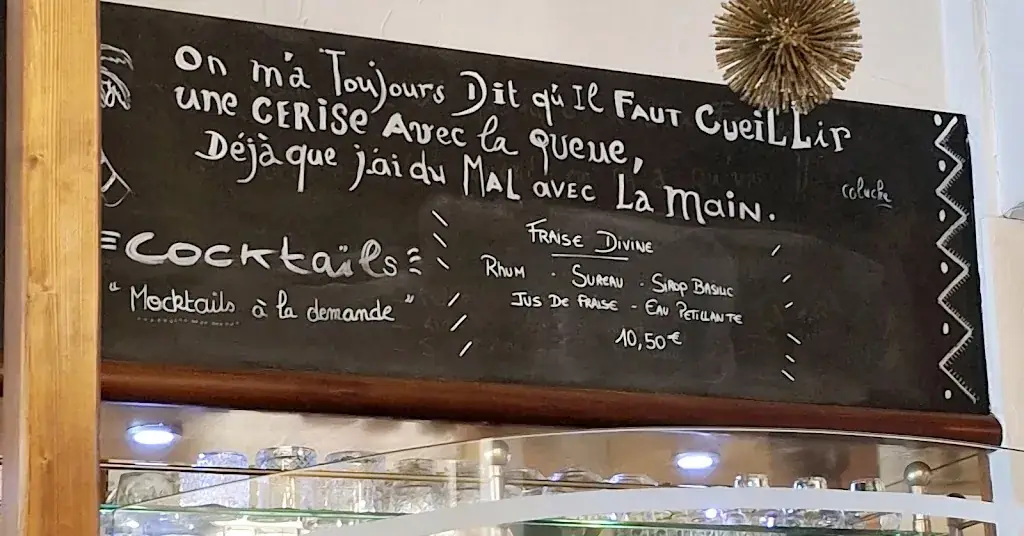 On m'a Toujours Dit qu'Il FAUT CUEILLir
une CERISE Avec la queue,
Déjà que j'ai du MAL avec La Main.
coluche
Cocktails
"Mocktails à la demande"
FRAISE DIVINE
RHUM . SUREAU . SIROP BASILIC
JUS DE FRAISE - EAU PETILLANTE
10,50€